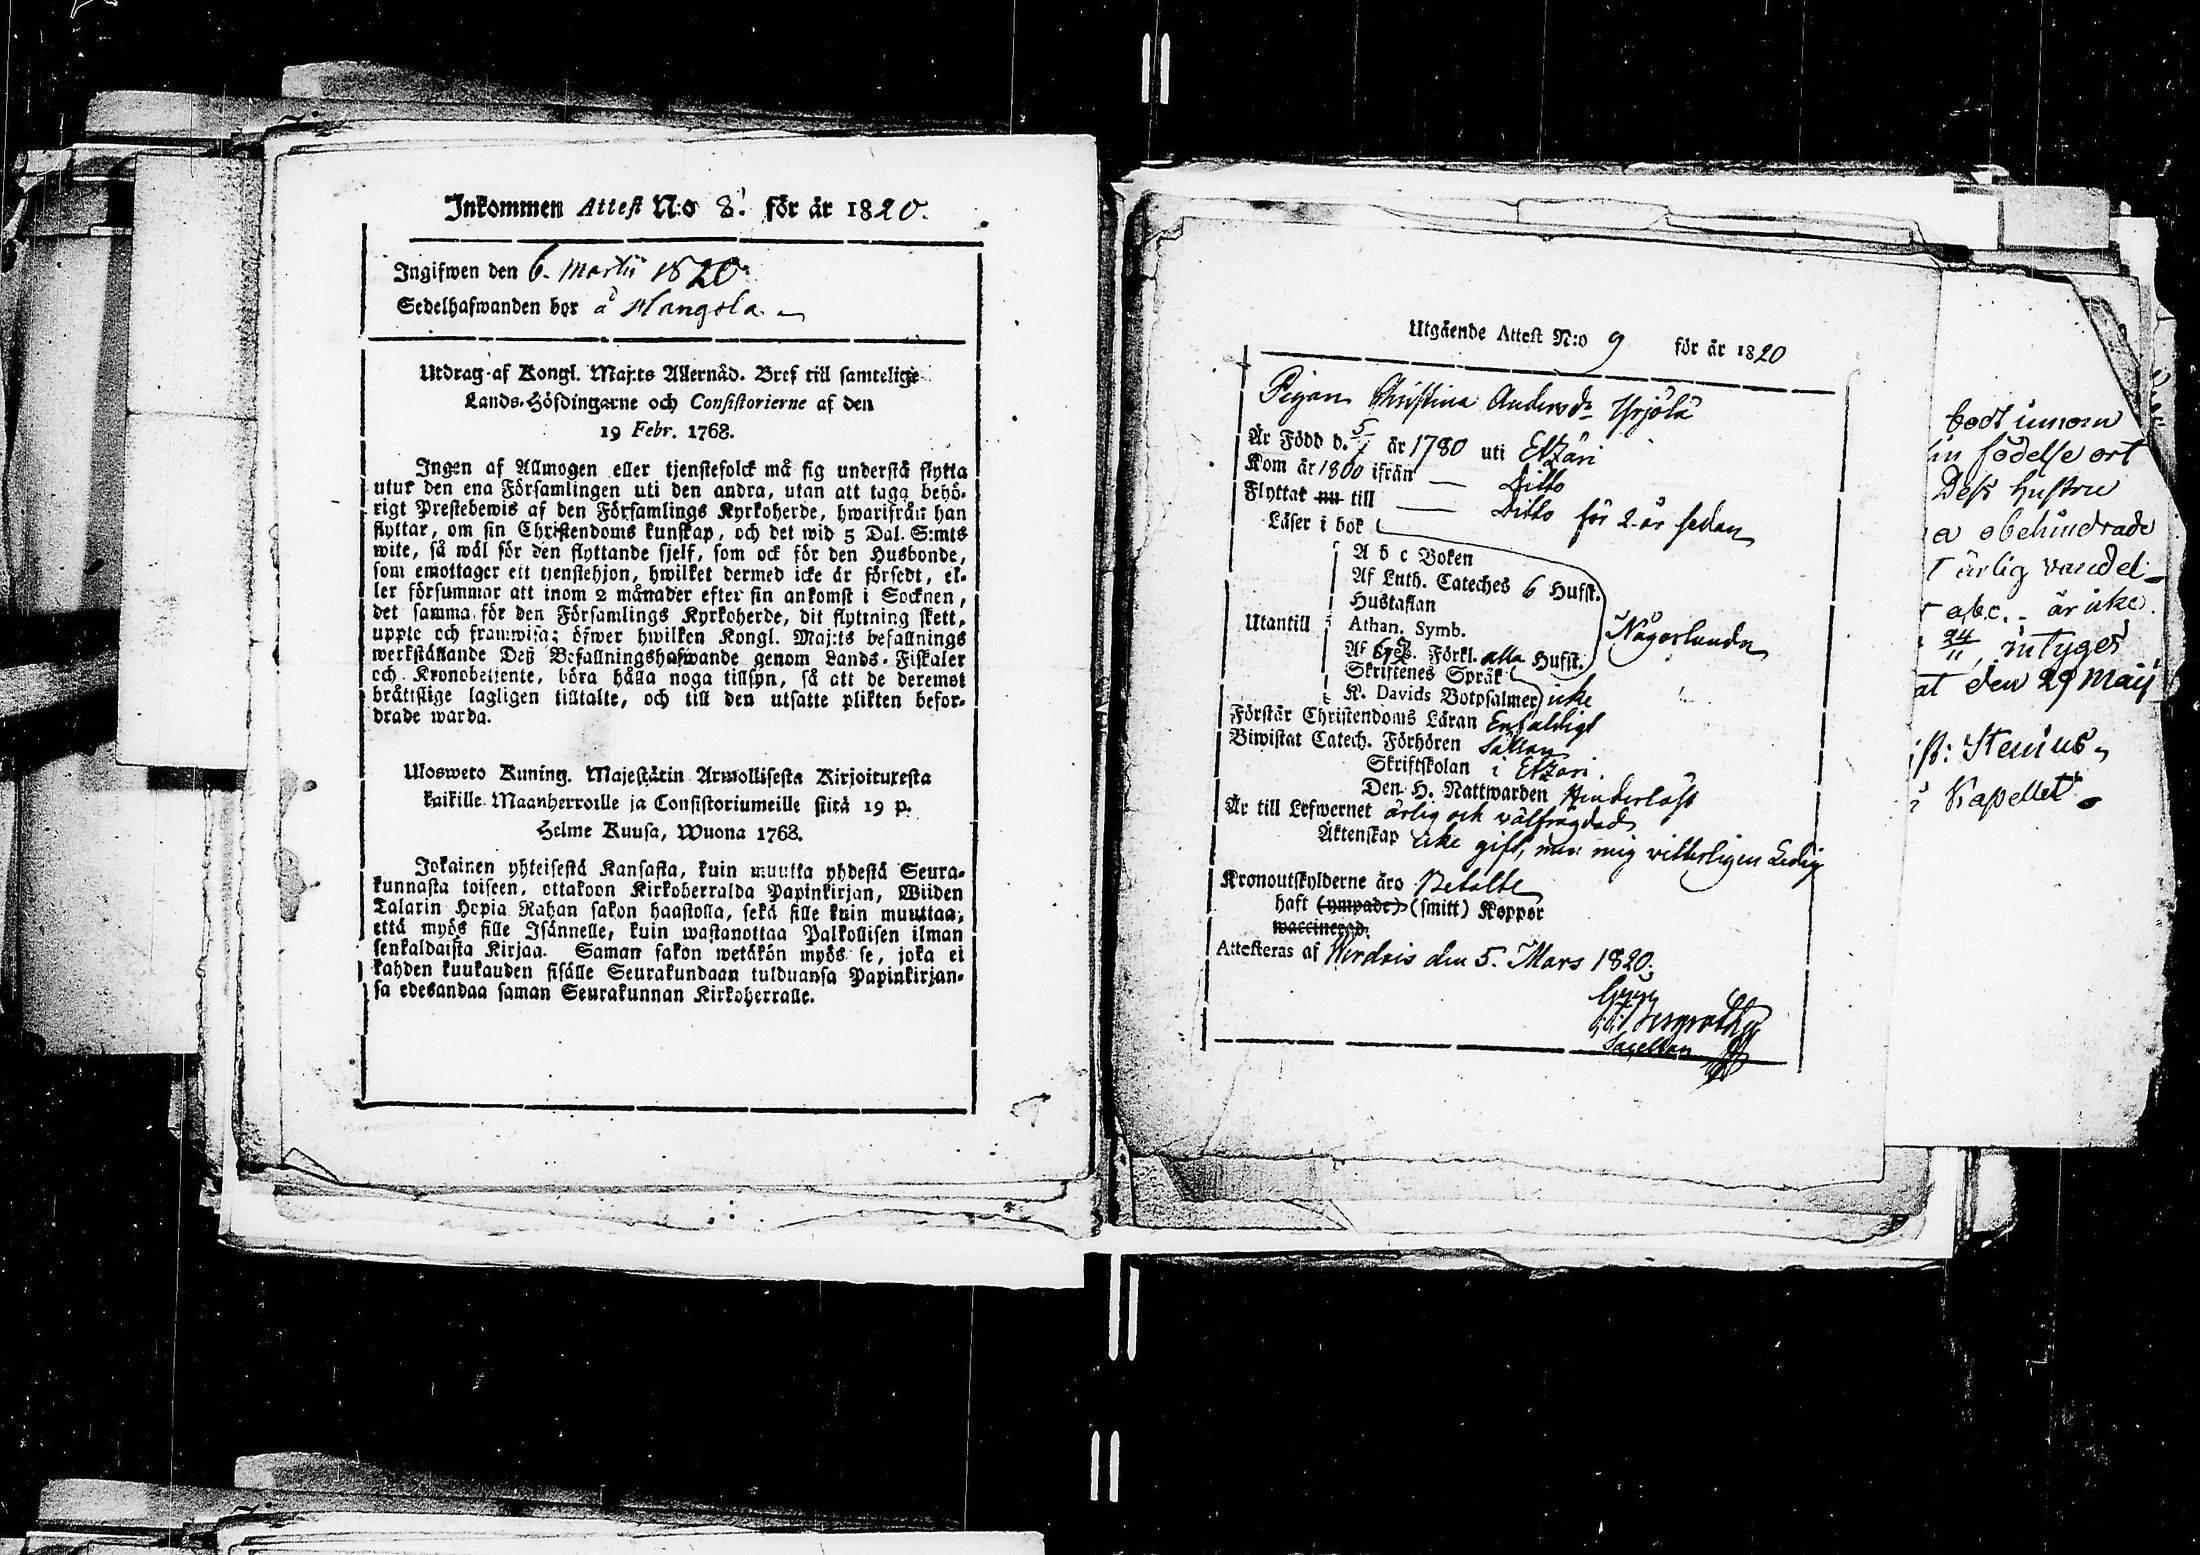 Inkommen Attest N:o 8. för år 1820.
Ingifwen den 6. Martii 1820.
Sedelhafwanden bor å Mangola
Utdrag af Kongl. Maj:ts Allernåd. Bref till samtelige
Lands-Höfdingarne och Consistorierne af den
19 Febr. 1768.
Ingen af Allmogen eller tjenstefolck må sig understå flytta
utur den ena Församlingen uti den andra, utan att taga behö-
rigt Prestebewis af den Församlings Kyrkoherde, hwarifrån han
flyttar, om sin Christendoms kunskap, och det wid 5 Dal. S:mts
wite, så wäl för den flyttande sjelf, som ock för den Husbonde,
som emottager ett tjenstehjon, hwilket dermed icke är försedt, el-
ler försummar att inom 2 månader efter sin ankomst i Socknen,
det samma för den Församlings Kyrkoherde, dit flyttning skett,
uppte och framwisa; öfwer hwilken Kongl. Maj:ts befallnings
werkställande Deß Befallningshafwande genom Lands-Fiskaler
och Kronobetjente, böra hålla noga tillsyn, så att de deremot
bråttslige lagligen tilltalte, och till den utsatte plikten befor-
drade warda.
Ulosweto Kuning. Majestätin Armollisesta Kirjoituresta
kaikille Maanherroille ja Consistoriumeille siitä 19 p.
Helme Kuusa, Wuona 1768.
Jokainen yhteisestä Kansasta, kuin muutta yhdestä Seura-
kunnasta toiseen, ottakoon Kirkoherralda Papinkirjan, Wiiden
Talarin Hopia Rahan sakon haastolla, sekä sille kuin muuttaa,
että myös sille Isännelle, kuin wastanottaa Palkollisen ilman
senkaldaista Kirjaa. Saman sakon wetäkön myös se, joka ei
kahden kuukauden sisälle Seurakundaan tulduansa Papinkirjan-
sa edesandaa saman Seurakunnan Kirkoherralle.
Utgående Attest N:o 9 för år 1820
Pigan Christina Andersdr Yrjölä
Är Född d. 5/1 år 1780 uti Etzäri
Kom år 1800 ifrån — Ditto
Flyttat nu till — Ditto för 2 år sedan
Läser i bok
A b c Boken
Af Luth. Cateches 6 Hufst.
Hustaflan
Utantill Athan. Symb. Någorlunda
Af Förkl. alla Hufst.
Skriftenes Språk
K. Davids Botpsalmer icke
Förstår Christendoms Läran Enfaldigt
Biwistat Catech. Förhören Sällan
Skriftskolan i Etzäri.
Den H. Nattwarden Hinderlöst
Är till Lefwernet ärlig och välfrägdad
Äktenskap icke gift, men mig vitterligen Ledig
Kronoutskylderne äro Betalte
haft (ympade) (smitt) Koppor
waccinerad.
Attesteras af Wirdois den 5. Mars 1820.
Sacellan
bodt innom
in födelse ort
Dess hustru
a obehindrade
t ärlig vandel
abc. är icke
24/11, intygas
at den 29 Maij
st: Stenius
i Kapellet